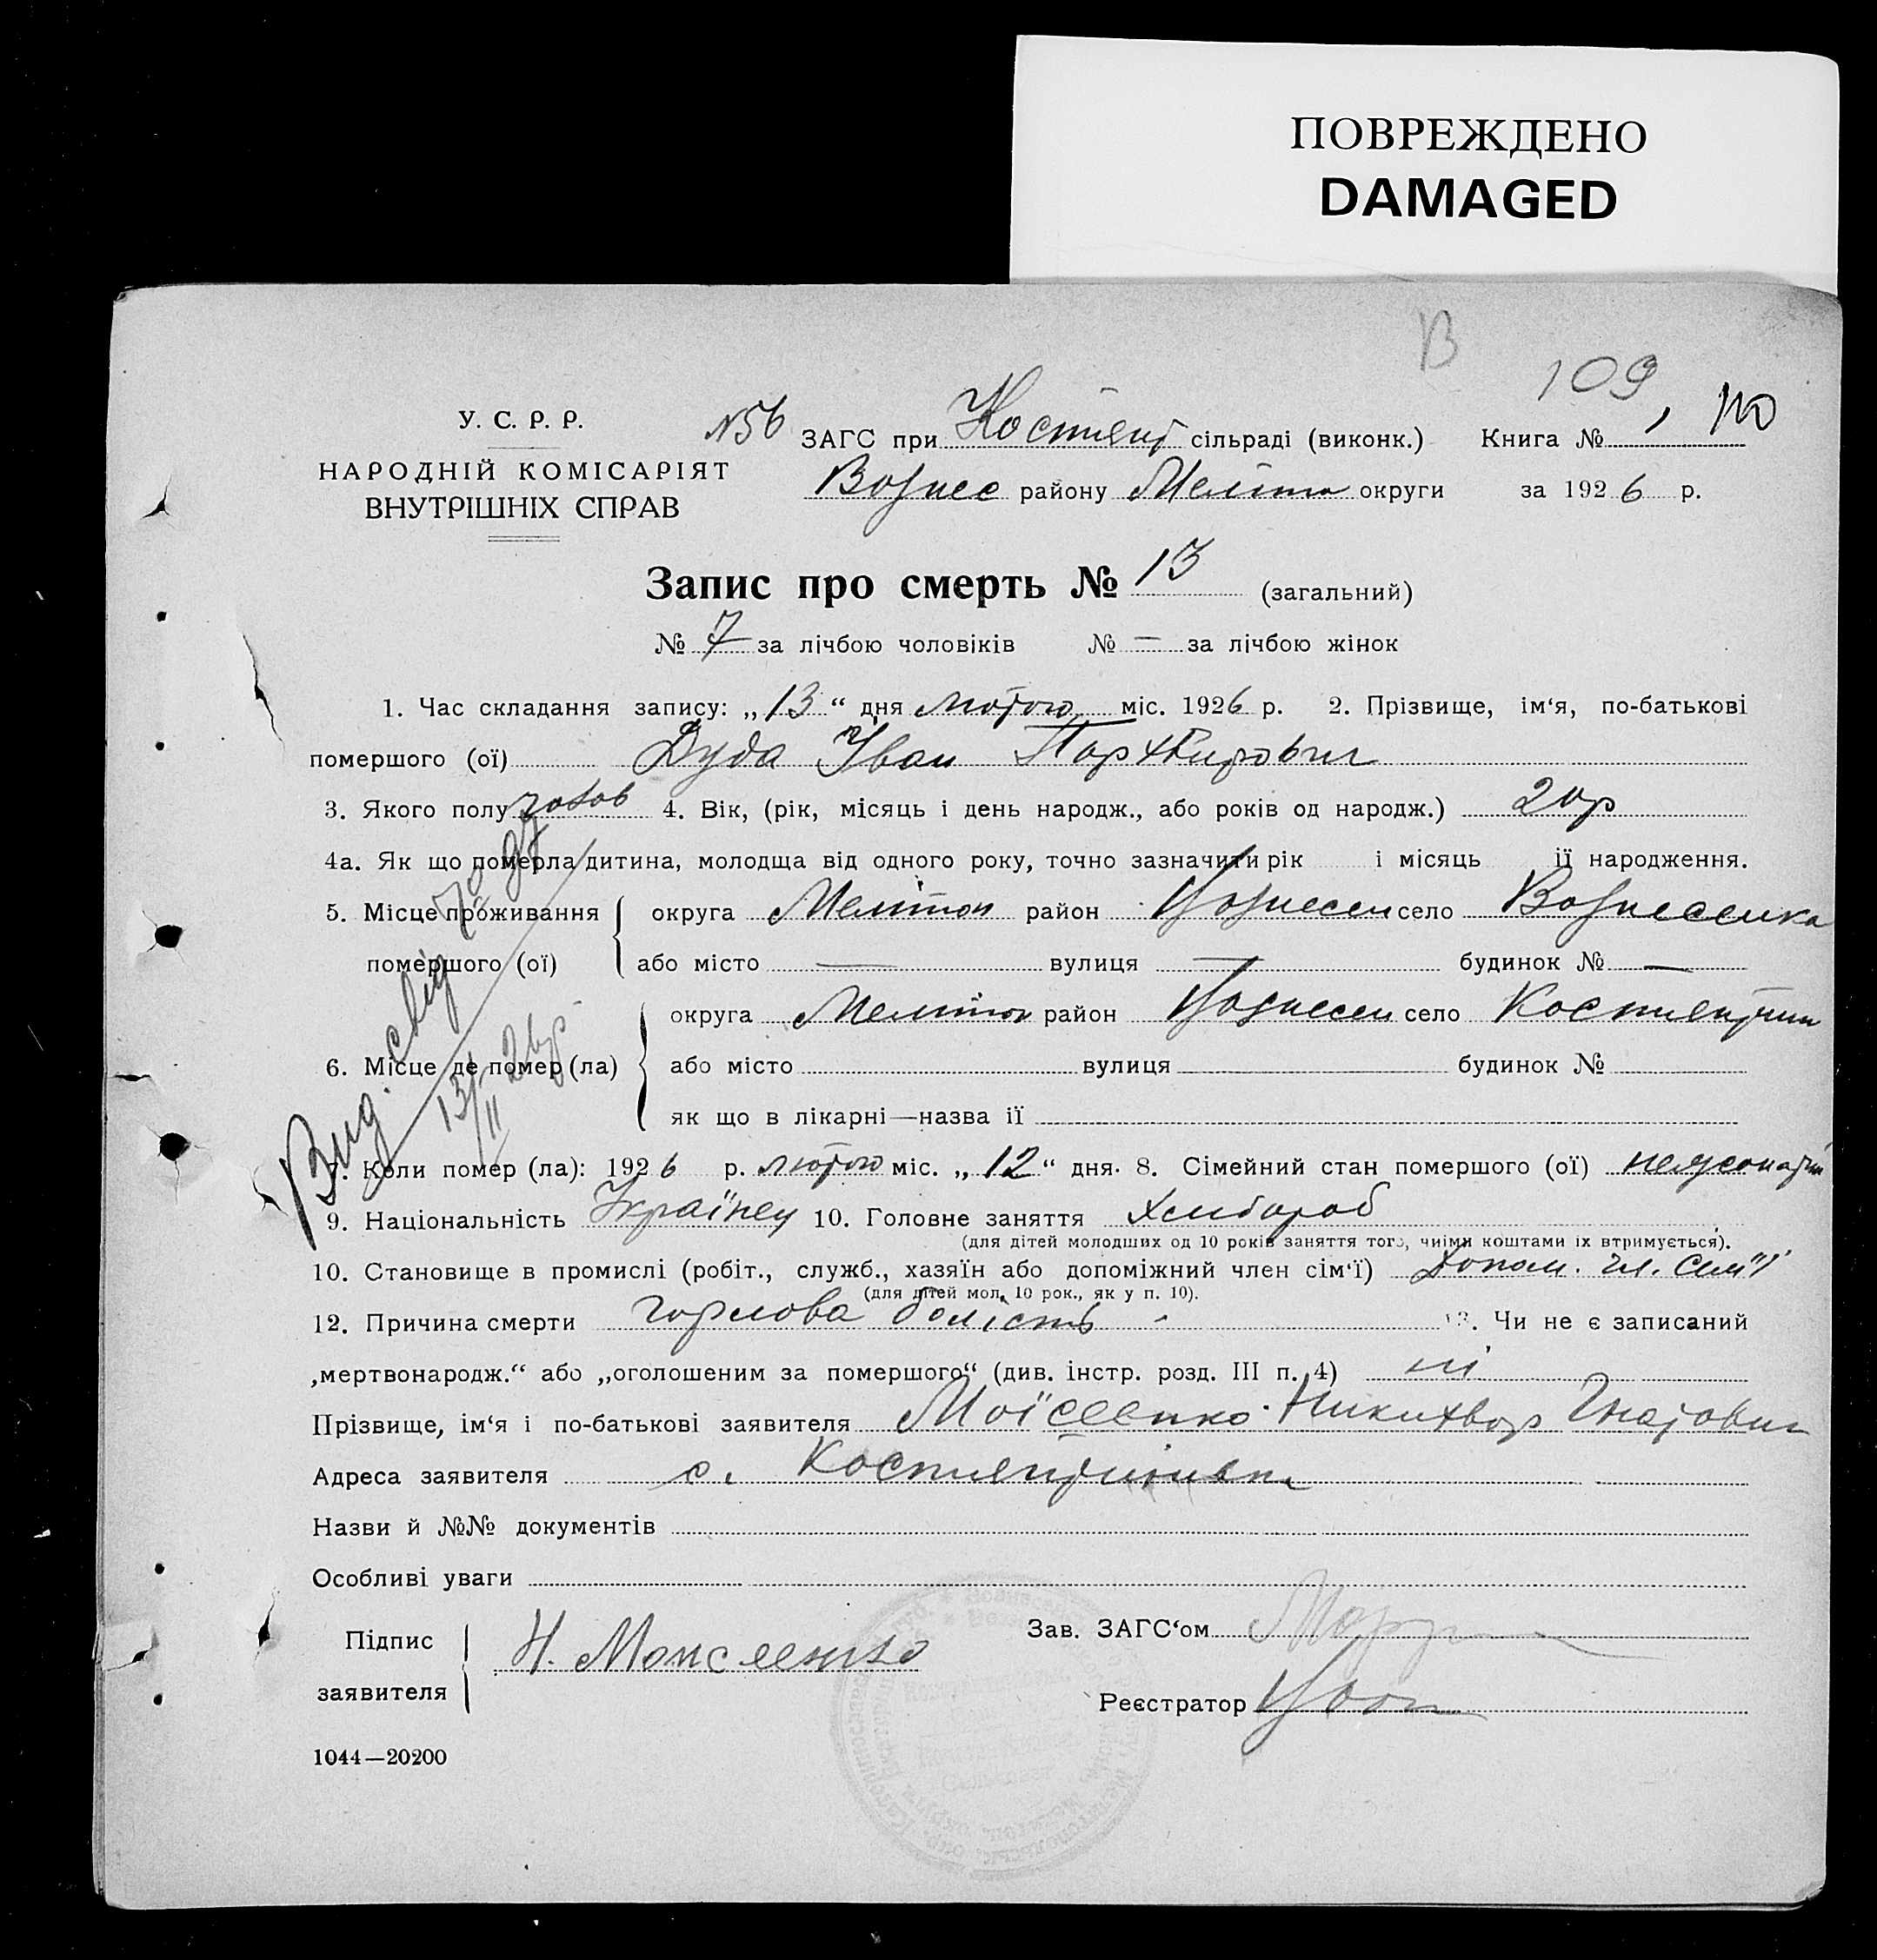 ПОВРЕЖДЕНО
DAMAGED
В
109
110
У. С. Р. Р.
НАРОДНІЙ КОМІСАРІЯТ
ВНУТРІШНІХ СПРАВ
№56 ЗАГС при Костянт сільраді (виконк.) Книга №
Вознес району Меліто округи за 1926 р.
Запис про смерть № 13 (загальний)
№ 7 за лічбою чоловіків № — за лічбою жінок
1. Час складання запису: „13“ дня лютого міс. 1926 р. 2. Прізвище, ім‘я, по-батькові
помершого (ої) Дуда Іван Пархвирович
3. Якого полу чолов 4. Вік, (рік, місяць і день народж., або років од народж.) 20р
4а. Як що померла дитина, молодща від одного року, точно зазначити рік і місяць її народження.
5. Місце проживання помершого (ої) округа Мелітоп район Вознесен село Вознесенка
або місто — вулиця — будинок № —
6. Місце де помер (ла) округа Мелітоп район Вознесен село Костянтин
або місто вулиця будинок №
як що в лікарні—назва її
Вид. свід 13/II 26р
7. Коли помер (ла): 1926 р. лютого міс. „12“ дня. 8. Сімейний стан помершого (ої)
9. Національність Українец 10. Головне заняття Хлибороб
(для дітей молодших од 10 років заняття того, чиїми коштами їх втримується).
10. Становище в промислі (робіт., служб., хазяїн або допоміжний член сім‘ї) допом. чл. сім'ї
(для дітей мол. 10 рок., як у п. 10).
12. Причина смерти горлова болість 13. Чи не є записаний
‚мертвонародж.“ або „оголошеним за помершого“ (див. інстр. розд. III п. 4) ні
Прізвище, ім‘я і по-батькові заявителя Моїсеенко Никихвор Гнатович
Адреса заявителя с. Костянтинівка
Назви й №№ документів
Особливі уваги
Підпис заявителя Н. Моисеенко
Зав. ЗАГС‘ом
Реєстратор
1044—20200